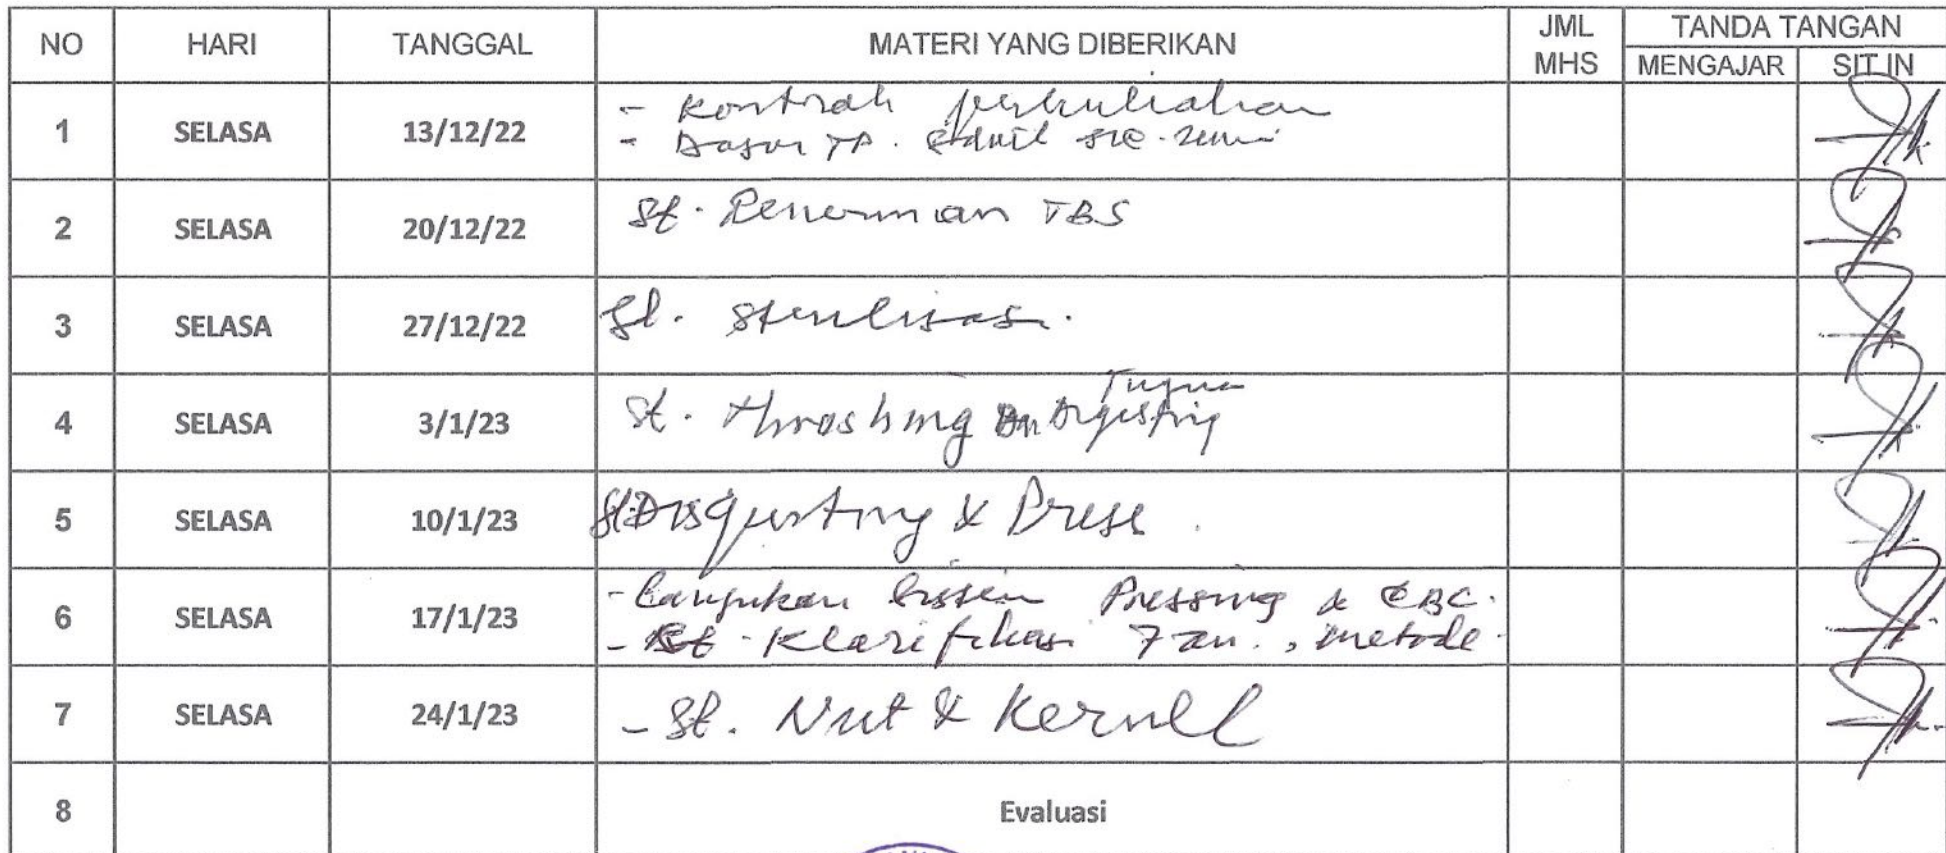 NO HARI TANGGAL MATERI YANG DIBERIKAN JML MHS TANDA TANGAN
MENGAJAR SIT IN
1 SELASA 13/12/22 - Kontrak perkuliahan
- Dasar
2 SELASA 20/12/22 St. Penerimaan TBS
3 SELASA 27/12/22 St. Sterilisasi.
4 SELASA 3/1/23 St. Throshing
5 SELASA 10/1/23 & Press
6 SELASA 17/1/23 - Pressing & CBC.
- St. Klarifikasi metode
7 SELASA 24/1/23 - St. Nut & Kernell
8 Evaluasi